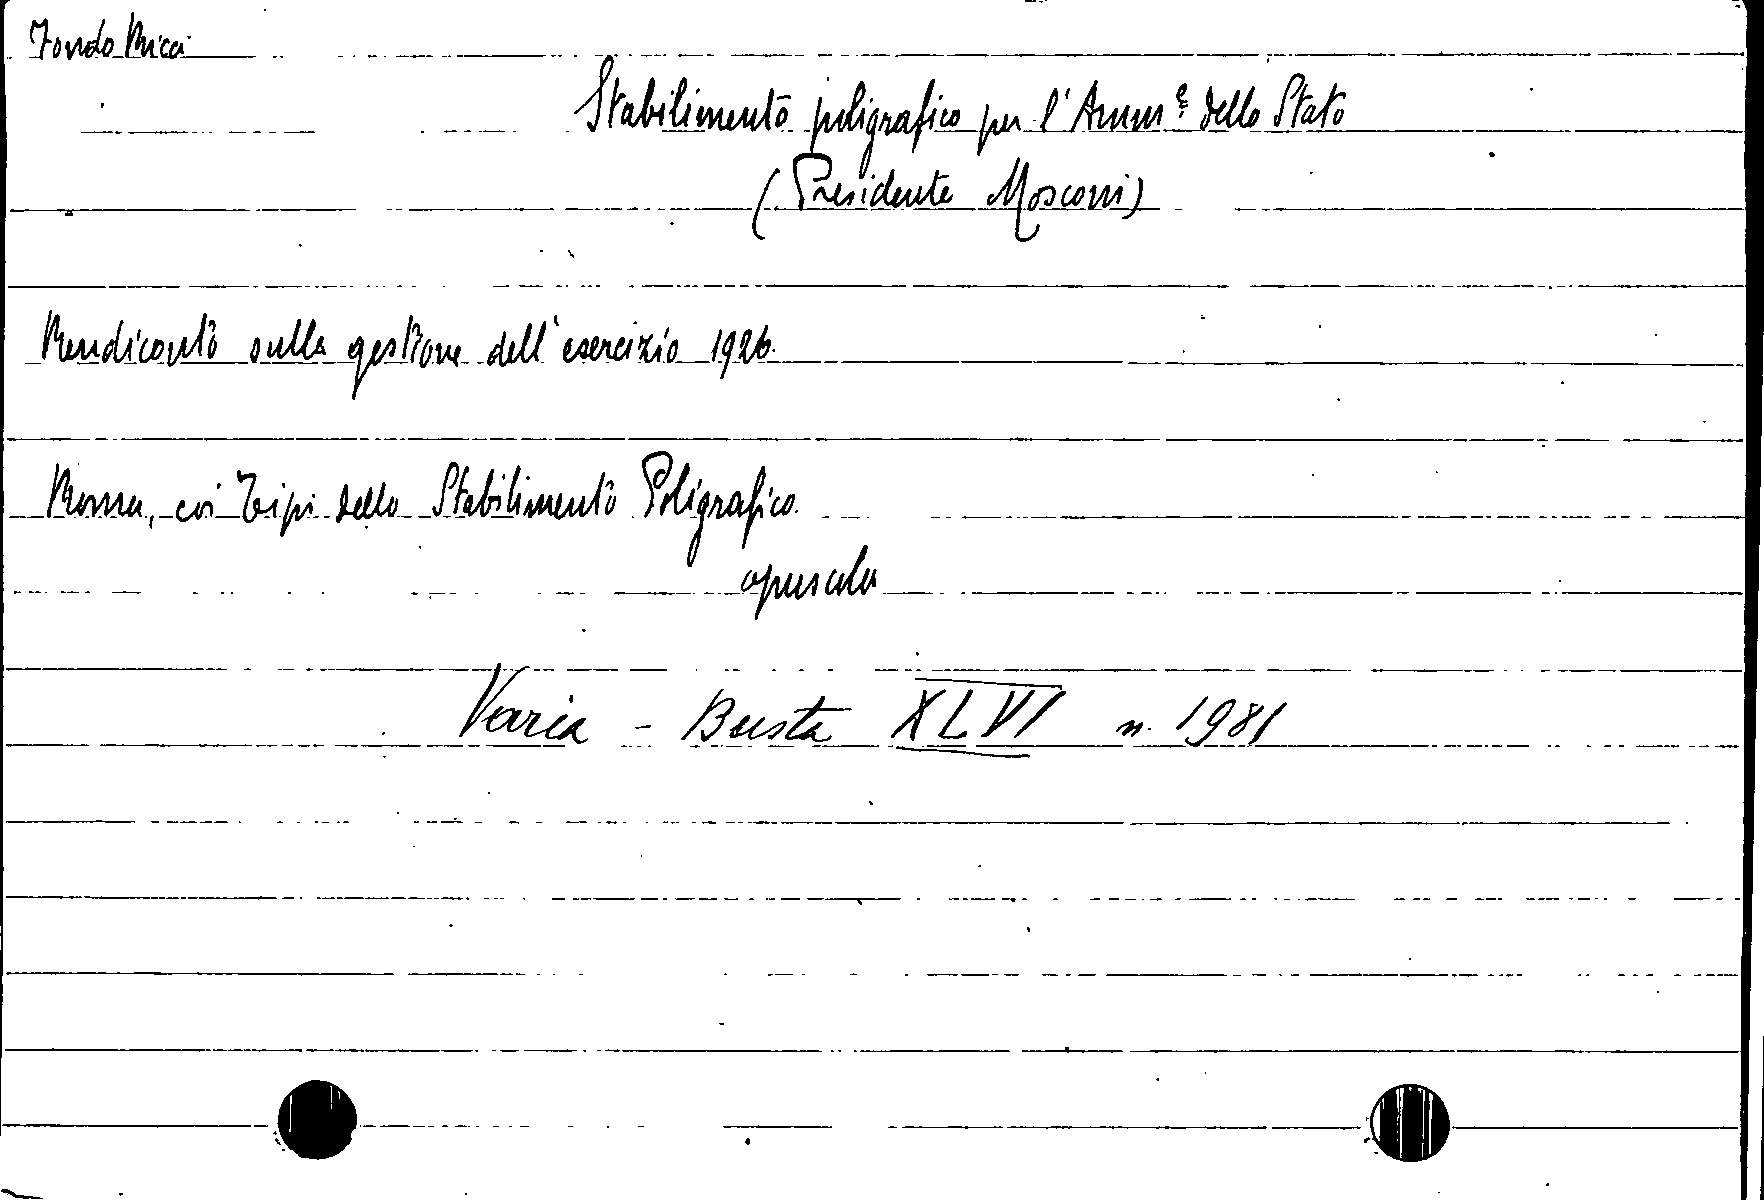 Fondo Ricci
Stabilimento poligrafico per l'Amm.e dello Stato
(Presidente Mosconi)
Rendiconto sulla gestione dell'esercizio 1926.
Roma, coi Tipi dello Stabilimento Poligrafico.
opuscolo
Varia - Busta XLVI n. 1981